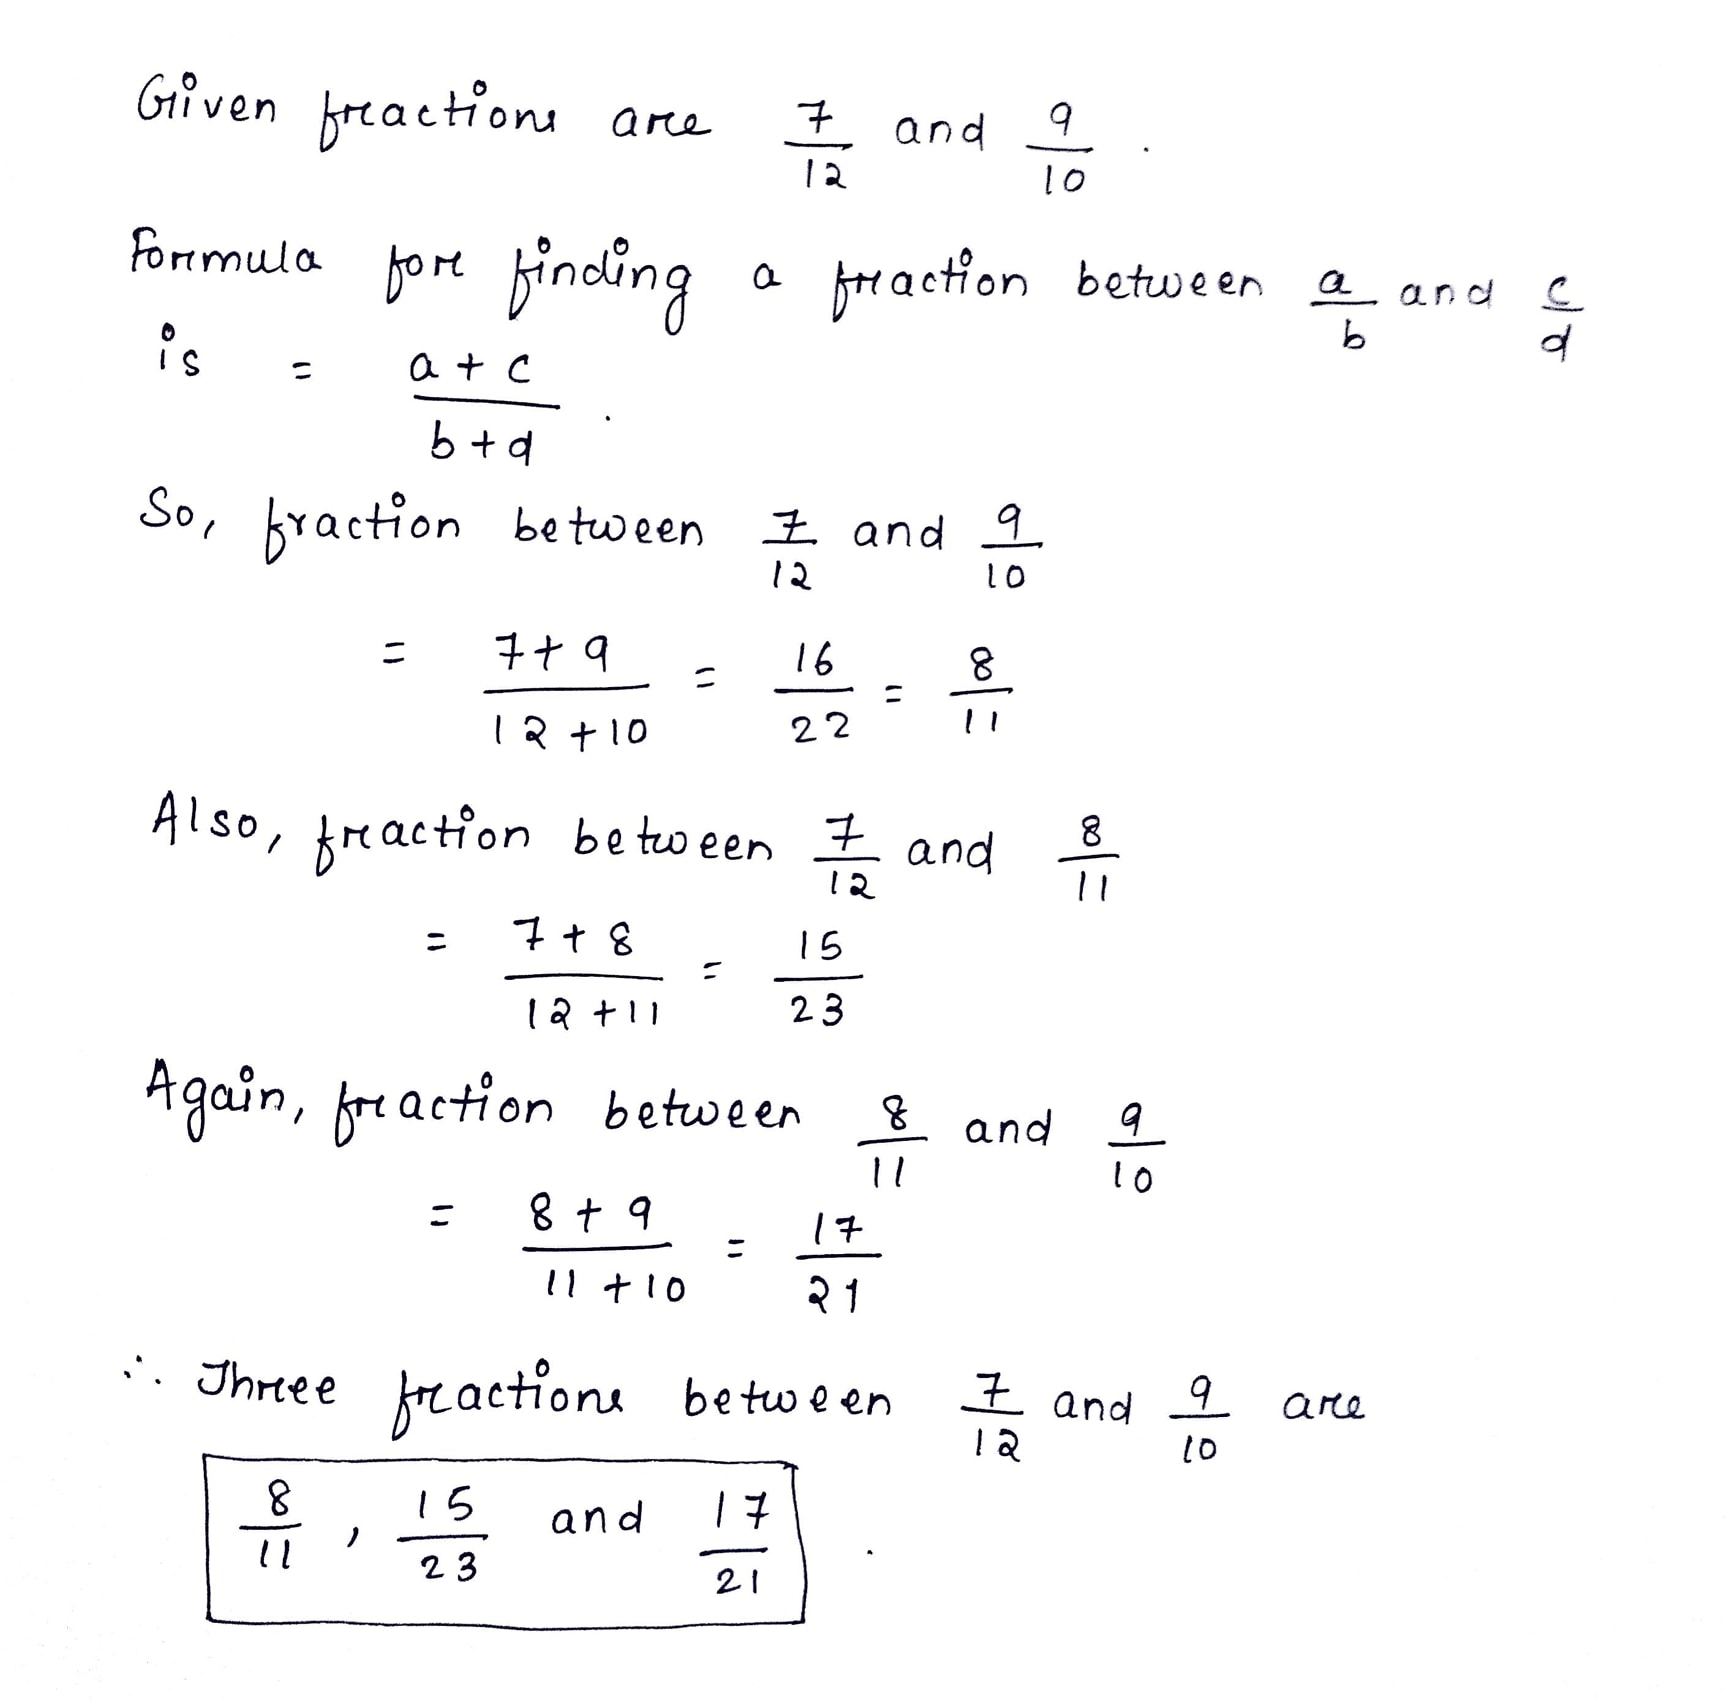 Given fractions are 7/12 and 9/10 .
Formula for finding a fraction between a/b and c/d
is = a + c / b + d .
So, fraction between 7/12 and 9/10
= 7 + 9 / 12 + 10 = 16/22 = 8/11
Also, fraction between 7/12 and 8/11
= 7 + 8 / 12 + 11 = 15/23
Again, fraction between 8/11 and 9/10
= 8 + 9 / 11 + 10 = 17/21
∴ Three fractions between 7/12 and 9/10 are
8/11 , 15/23 and 17/21 .